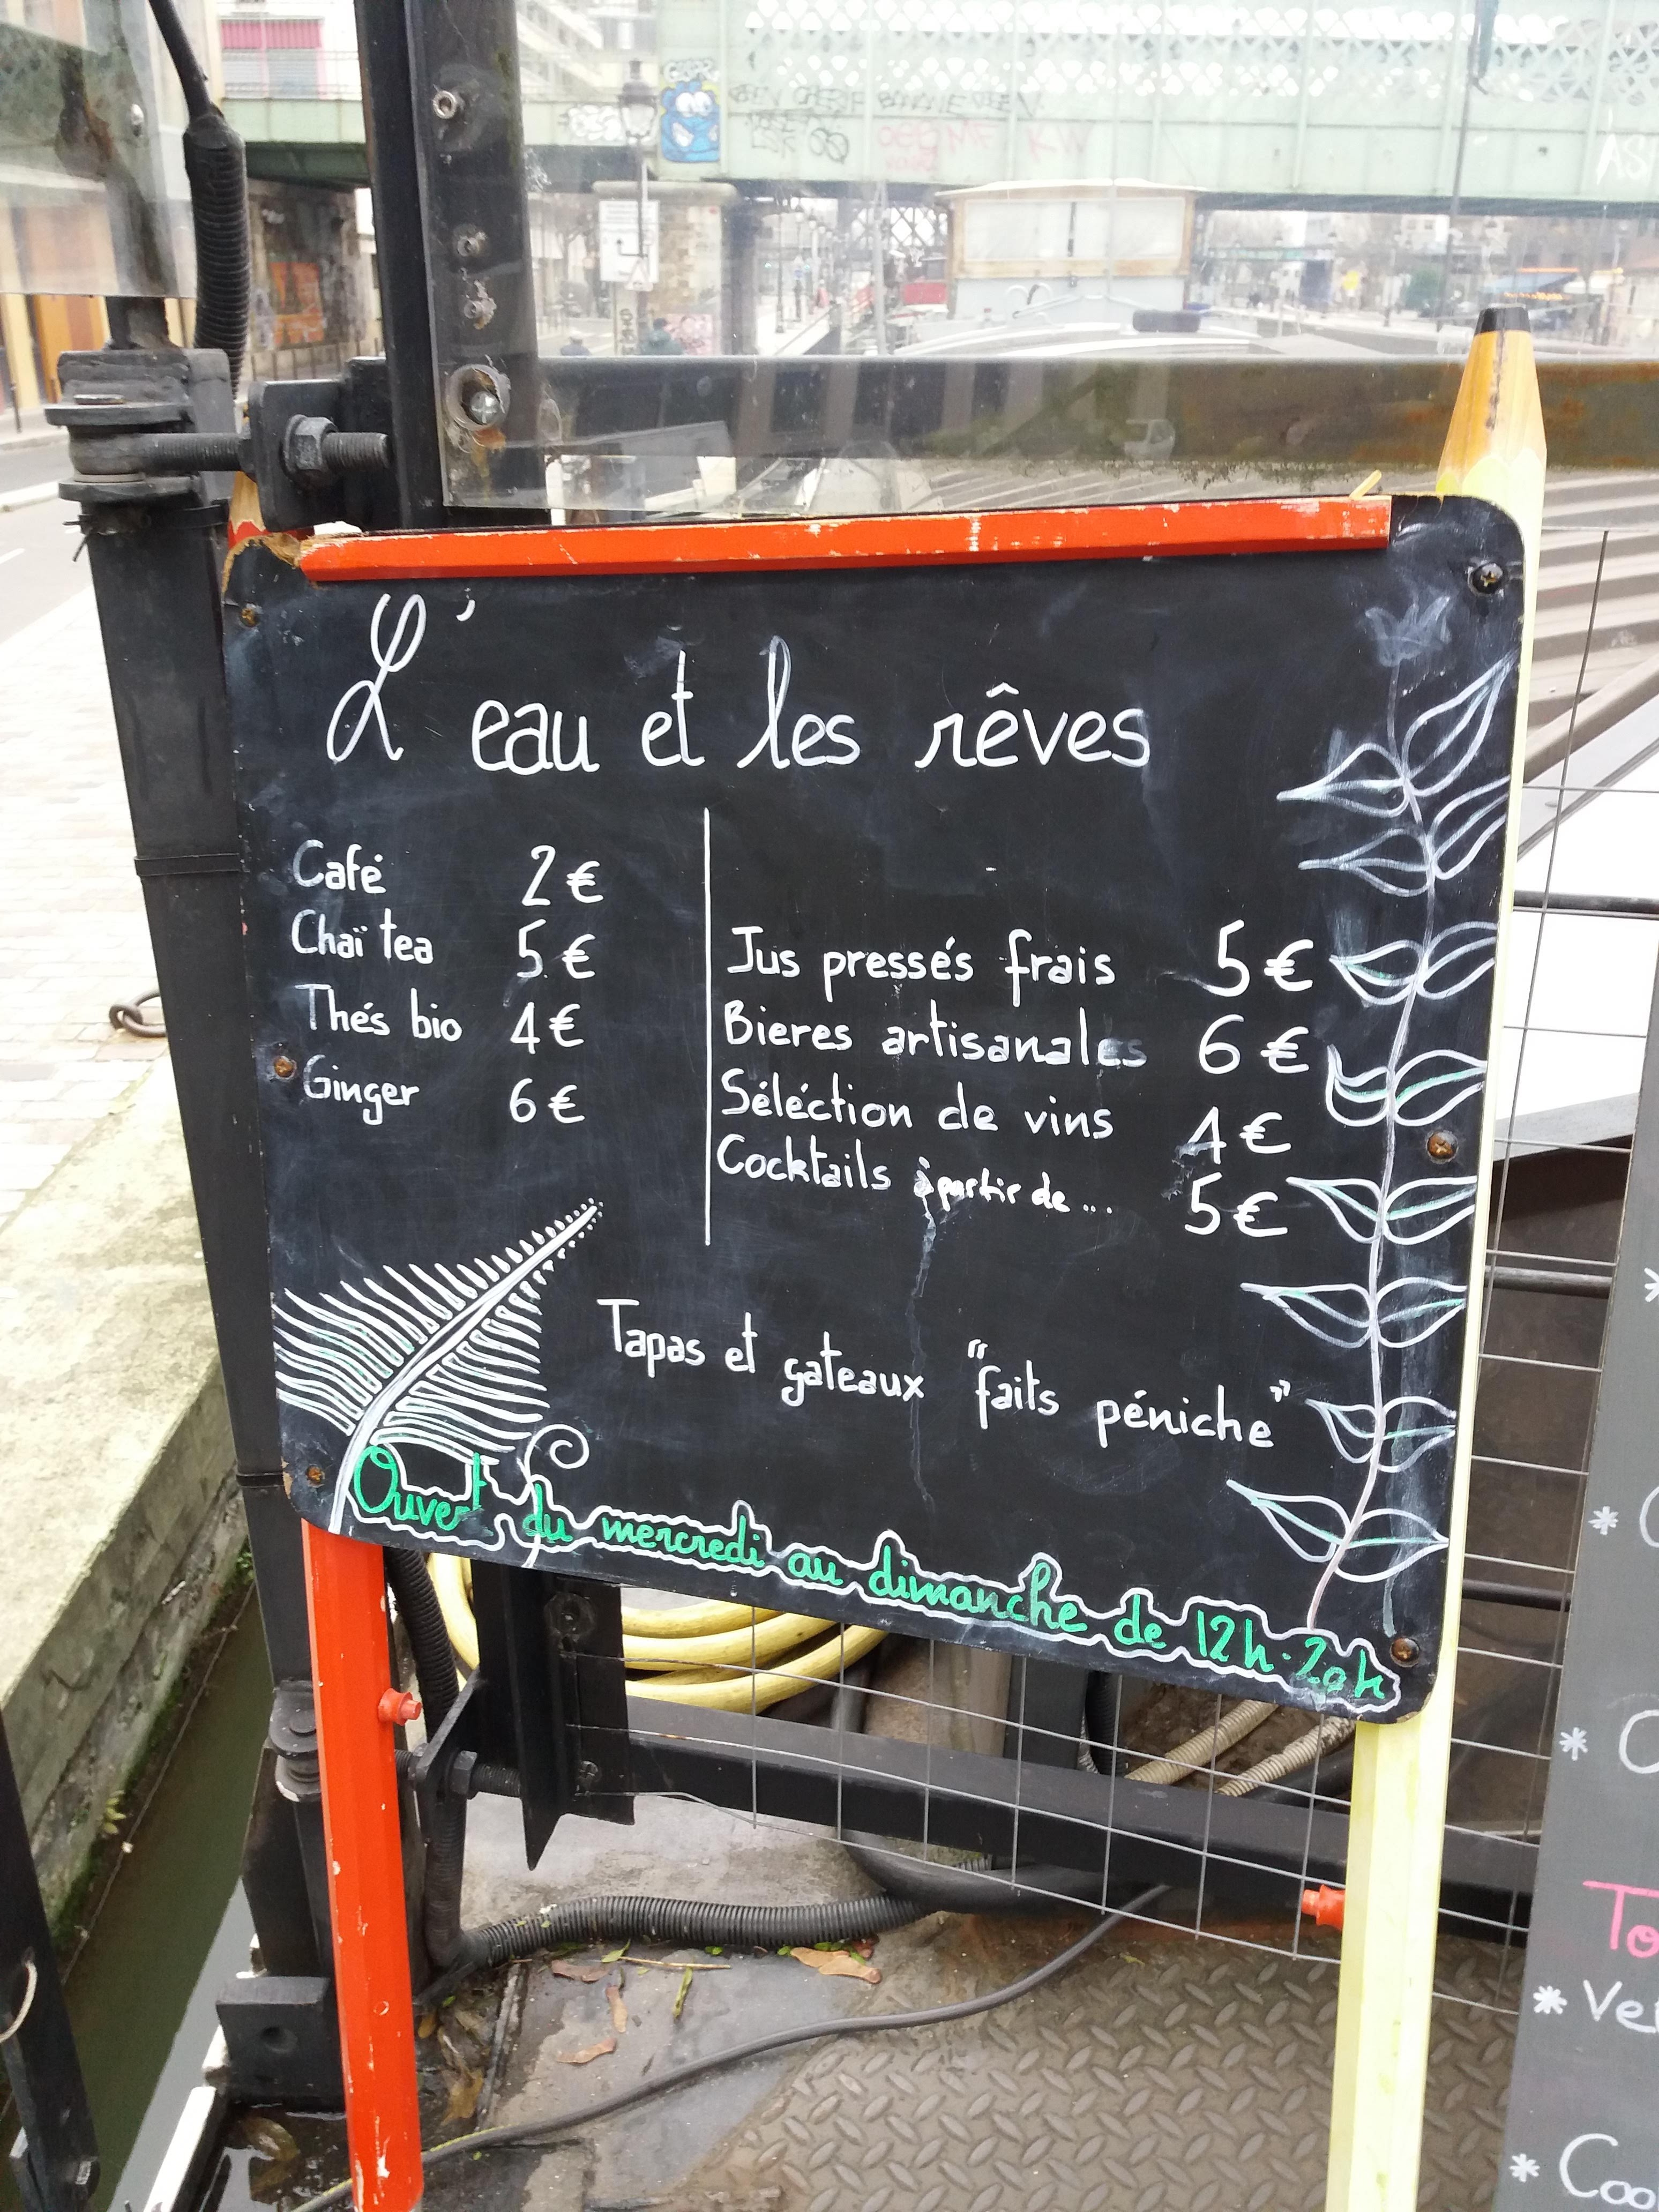 L'eau et les rêves
Café 2€
Chaï tea 5€
Thés bio 4€
Ginger 6€
Jus pressés frais 5€
Bieres artisanales 6€
Séléction de vins 4€
Cocktails à partir de ... 5€
Tapas et gateaux "faits péniche"
Ouvert du mercredi au dimanche de 12h-20h